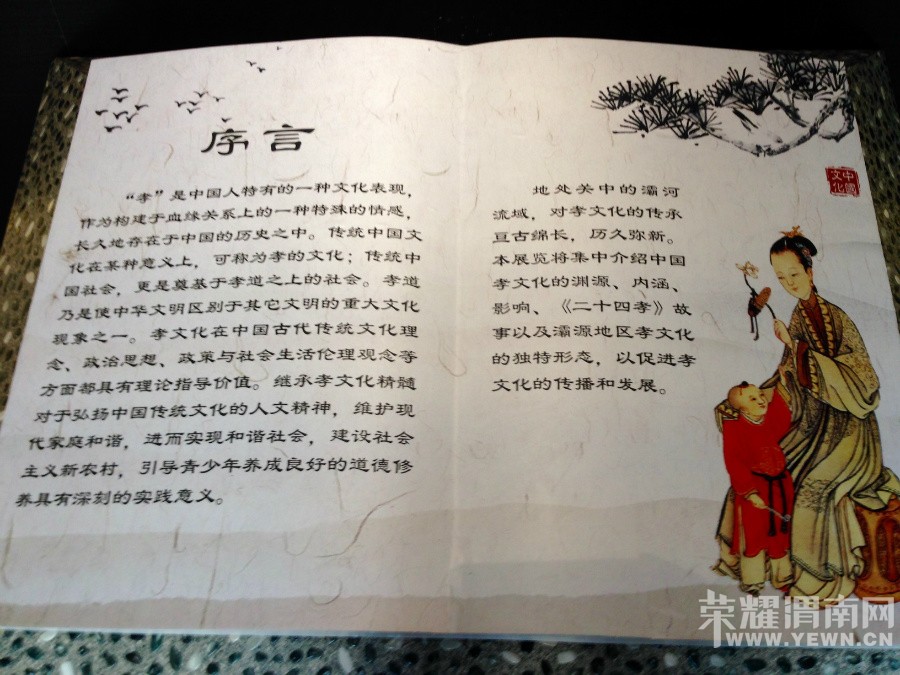 序言
“孝”是中国人特有的一种文化表现，
作为构建于血缘关系上的一种特殊的情感，
长久地存在于中国的历史之中。传统中国文
化在某种意义上，可称为孝的文化；传统中
国社会，更是奠基于孝道之上的社会。孝道
乃是使中华文明区别于其它文明的重大文化
现象之一。孝文化在中国古代传统文化理
念、政治思想、政策与社会生活伦理观念等
方面都具有理论指导价值。继承孝文化精髓
对于弘扬中国传统文化的人文精神，维护现
代家庭和谐，进而实现和谐社会，建设社会
主义新农村，引导青少年养成良好的道德修
养具有深刻的实践意义。
地处关中的灞河
流域，对孝文化的传承
亘古绵长，历久弥新。
本展览将集中介绍中国
孝文化的渊源、内涵、
影响、《二十四孝》故
事以及灞源地区孝文化
的独特形态，以促进孝
文化的传播和发展。
中國
文化
荣耀渭南网
WWW.YEWN.CN